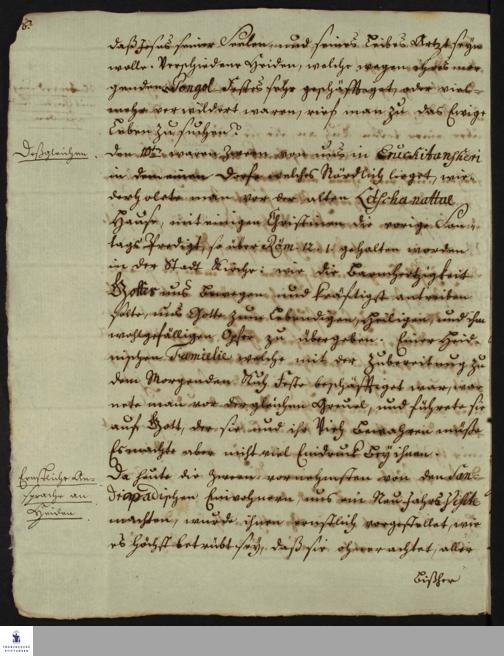 8.
daß Jesus seiner Seelen und seines Leibes Artzt seyn
wolle. Verschiedene Heiden, welche wegen ihres mor-
genden Pongol Festes sehr geschäfftiget, oder viel-
mehr verwildert waren, rief man zu das Ewige
Leben zu suchen.
Deßgleichen.
den 10t. waren zween von uns in
in dem einen Dorfe welches Nördlich lieget, wie-
derholete man vor der alten
Hause, mit einigen Christinnen die vorige Son-
tags Predigt, so über Röm. 12. 1. gehalten worden
in der Stadt Kirche: wie die Barmhertzigkeit
Gottes uns bewegen und kräftigst antreiben
solte, uns Gotte zum lebendigen, heiligen, und ihm
wohlgefälligen Opfer zu übergeben. Einer Heid-
nischen Familie welche mit der Zubereitung zu
dem Morgenden Feste beschäfftiget war, war-
nete man vor dergleichen Greuel, und führete sie
auf Gott, der sie und ihr Vieh bewahren müße
Es machte aber nicht viel Eindruck bey ihnen.
Ernstliche An-
sprache an
Heiden.
Da heute die zween vornehmsten von den San-
Einwohnern, uns ein Neu-Jahrs
machten, wurde ihnen ernstlich vorgestellet, wie
es höchst betrübt sey, daß sie ohnerachtet, aller
bißher
FRANCKESCHE
STIFTUNGEN